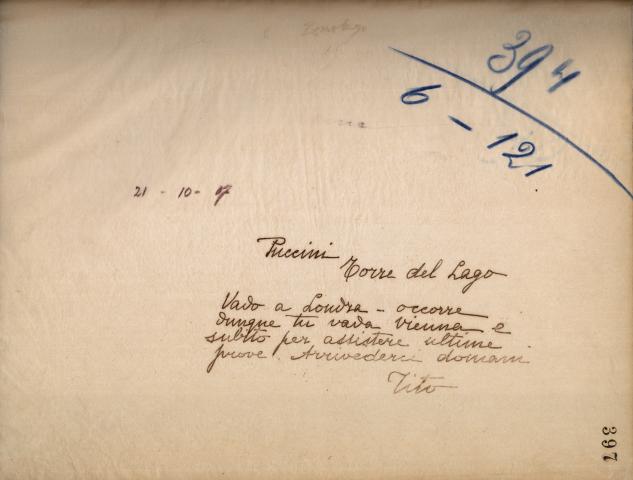 394
6 - 121
21 - 10 - 07
Puccini
Torre del Lago
Vado a Londra - occorre
dunque tu vada Vienna e
subito per assistere ultime
prove. Arrivederci domani
Tito
397